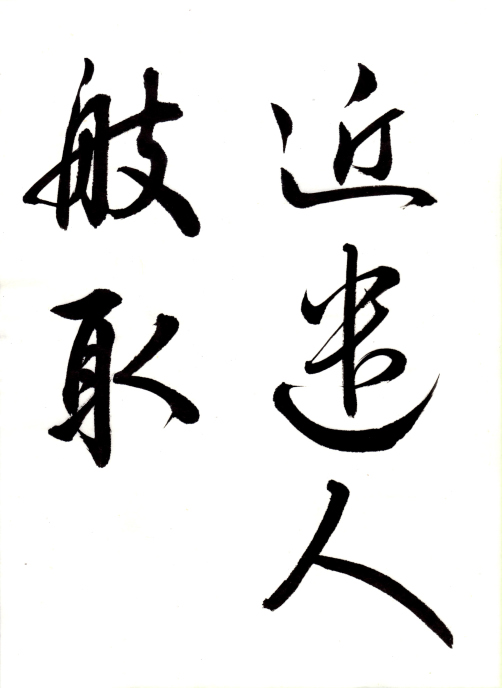 近遣人
般取